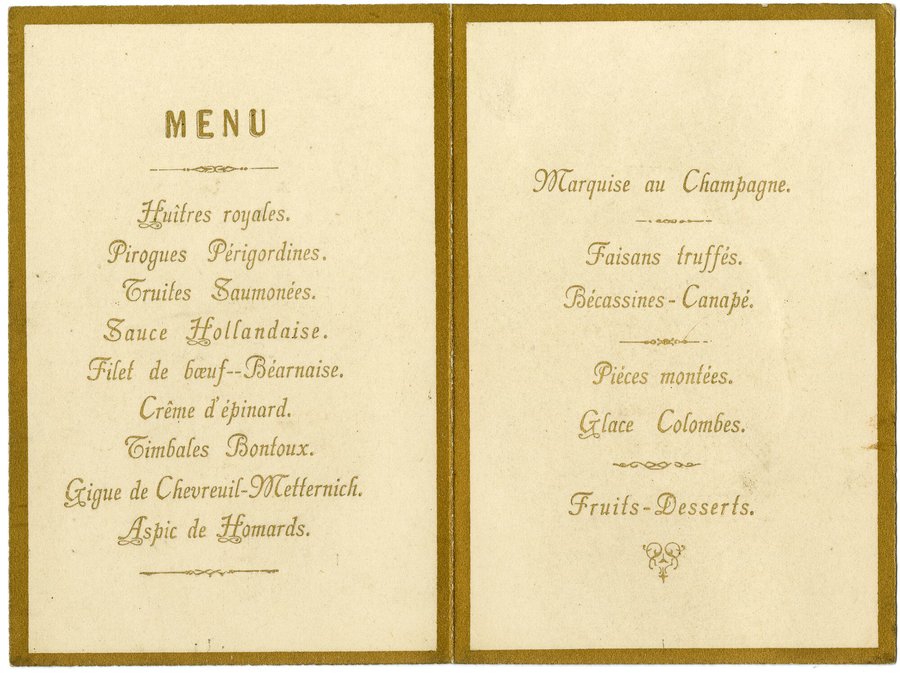 MENU
Huîtres royales.
Pirogues Périgordines.
Truites Saumonées.
Sauce Hollandaise.
Filet de bœuf--Béarnaise.
Crême d'épinard.
Timbales Bontoux.
Gigue de Chevreuil-Metternich.
Aspic de Homards.
Marquise au Champagne.
Faisans truffés.
Bécassines-Canapé.
Piéces montées.
Glace Colombes.
Fruits-Desserts.